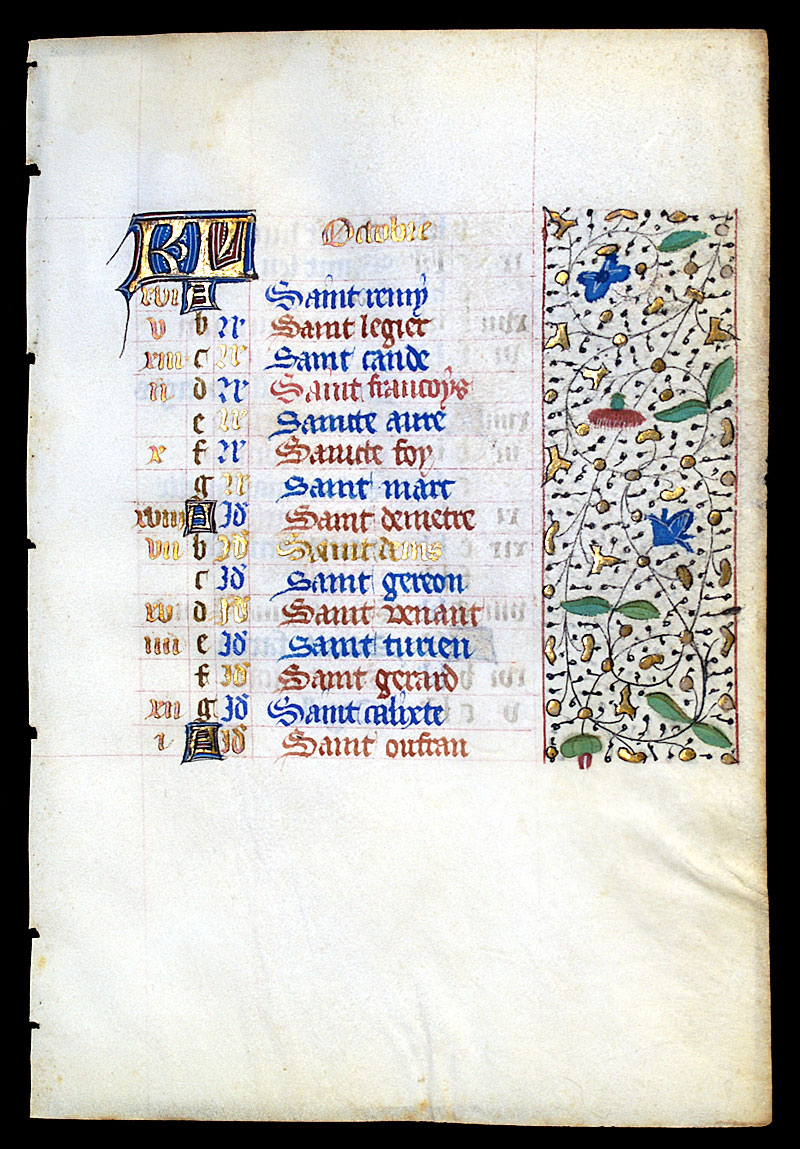 KL Octobre
xvi A Saint remy
v b N Saint legier
xiii c N Saint cande
ii d N Saint francoys
e N Saincte aure
x f N Saincte foy
g N Saint marc
xviii A Id Saint demetre
vii b Id Saint denis
c Id Saint gereon
xv d Id Saint venant
iiii e Id Saint turien
f Id Saint gerard
xii g Id Saint calixte
i A Id Saint oufran